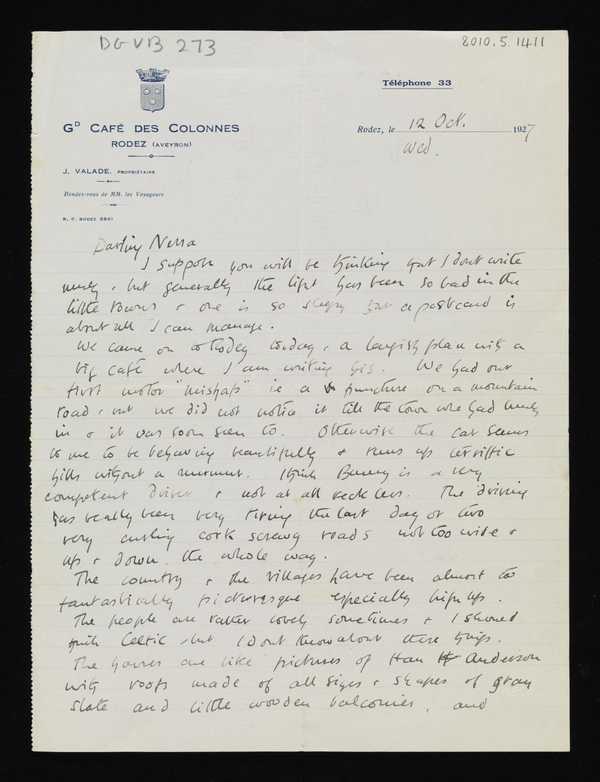 DGVB 273
8010.5.1411
Téléphone 33
GD CAFÉ DES COLONNES
RODEZ (AVEYRON)
J. VALADE, PROPRIÉTAIRE
Rendez-vous de MM. les Voyageurs
R. C. RODEZ 2201
Rodez, le 12 Oct. 1927
Wed.
Darling Nessa
I suppose you will be thinking that I dont write
much, but generally the light has been so bad in the
little towns & one is so sleepy that a postcard is
about all I can manage.
We came on to Rodez today, a largish place with a
big café where I am writing this. We had our
first motor "mishap" ie a puncture on a mountain
road, but we did not notice it till the town where we had lunch
in & it was soon seen to. Otherwise the car seems
to me to be behaving beautifully & runs up terrific
hills without a murmur. I think Bunny is a very
competent driver & not at all reckless. The driving
has really been very tiring the last day or two
very curling cork screwy roads not too wide &
up & down the whole way.
The country & the villages have been almost too
fantastically picturesque especially high up.
The people are rather lovely sometimes & I should
think Celtic, but I dont know about these things.
The houses are like pictures of Han Anderson
with roofs made of all sizes & shapes of gray
slate and little wooden balconies, and